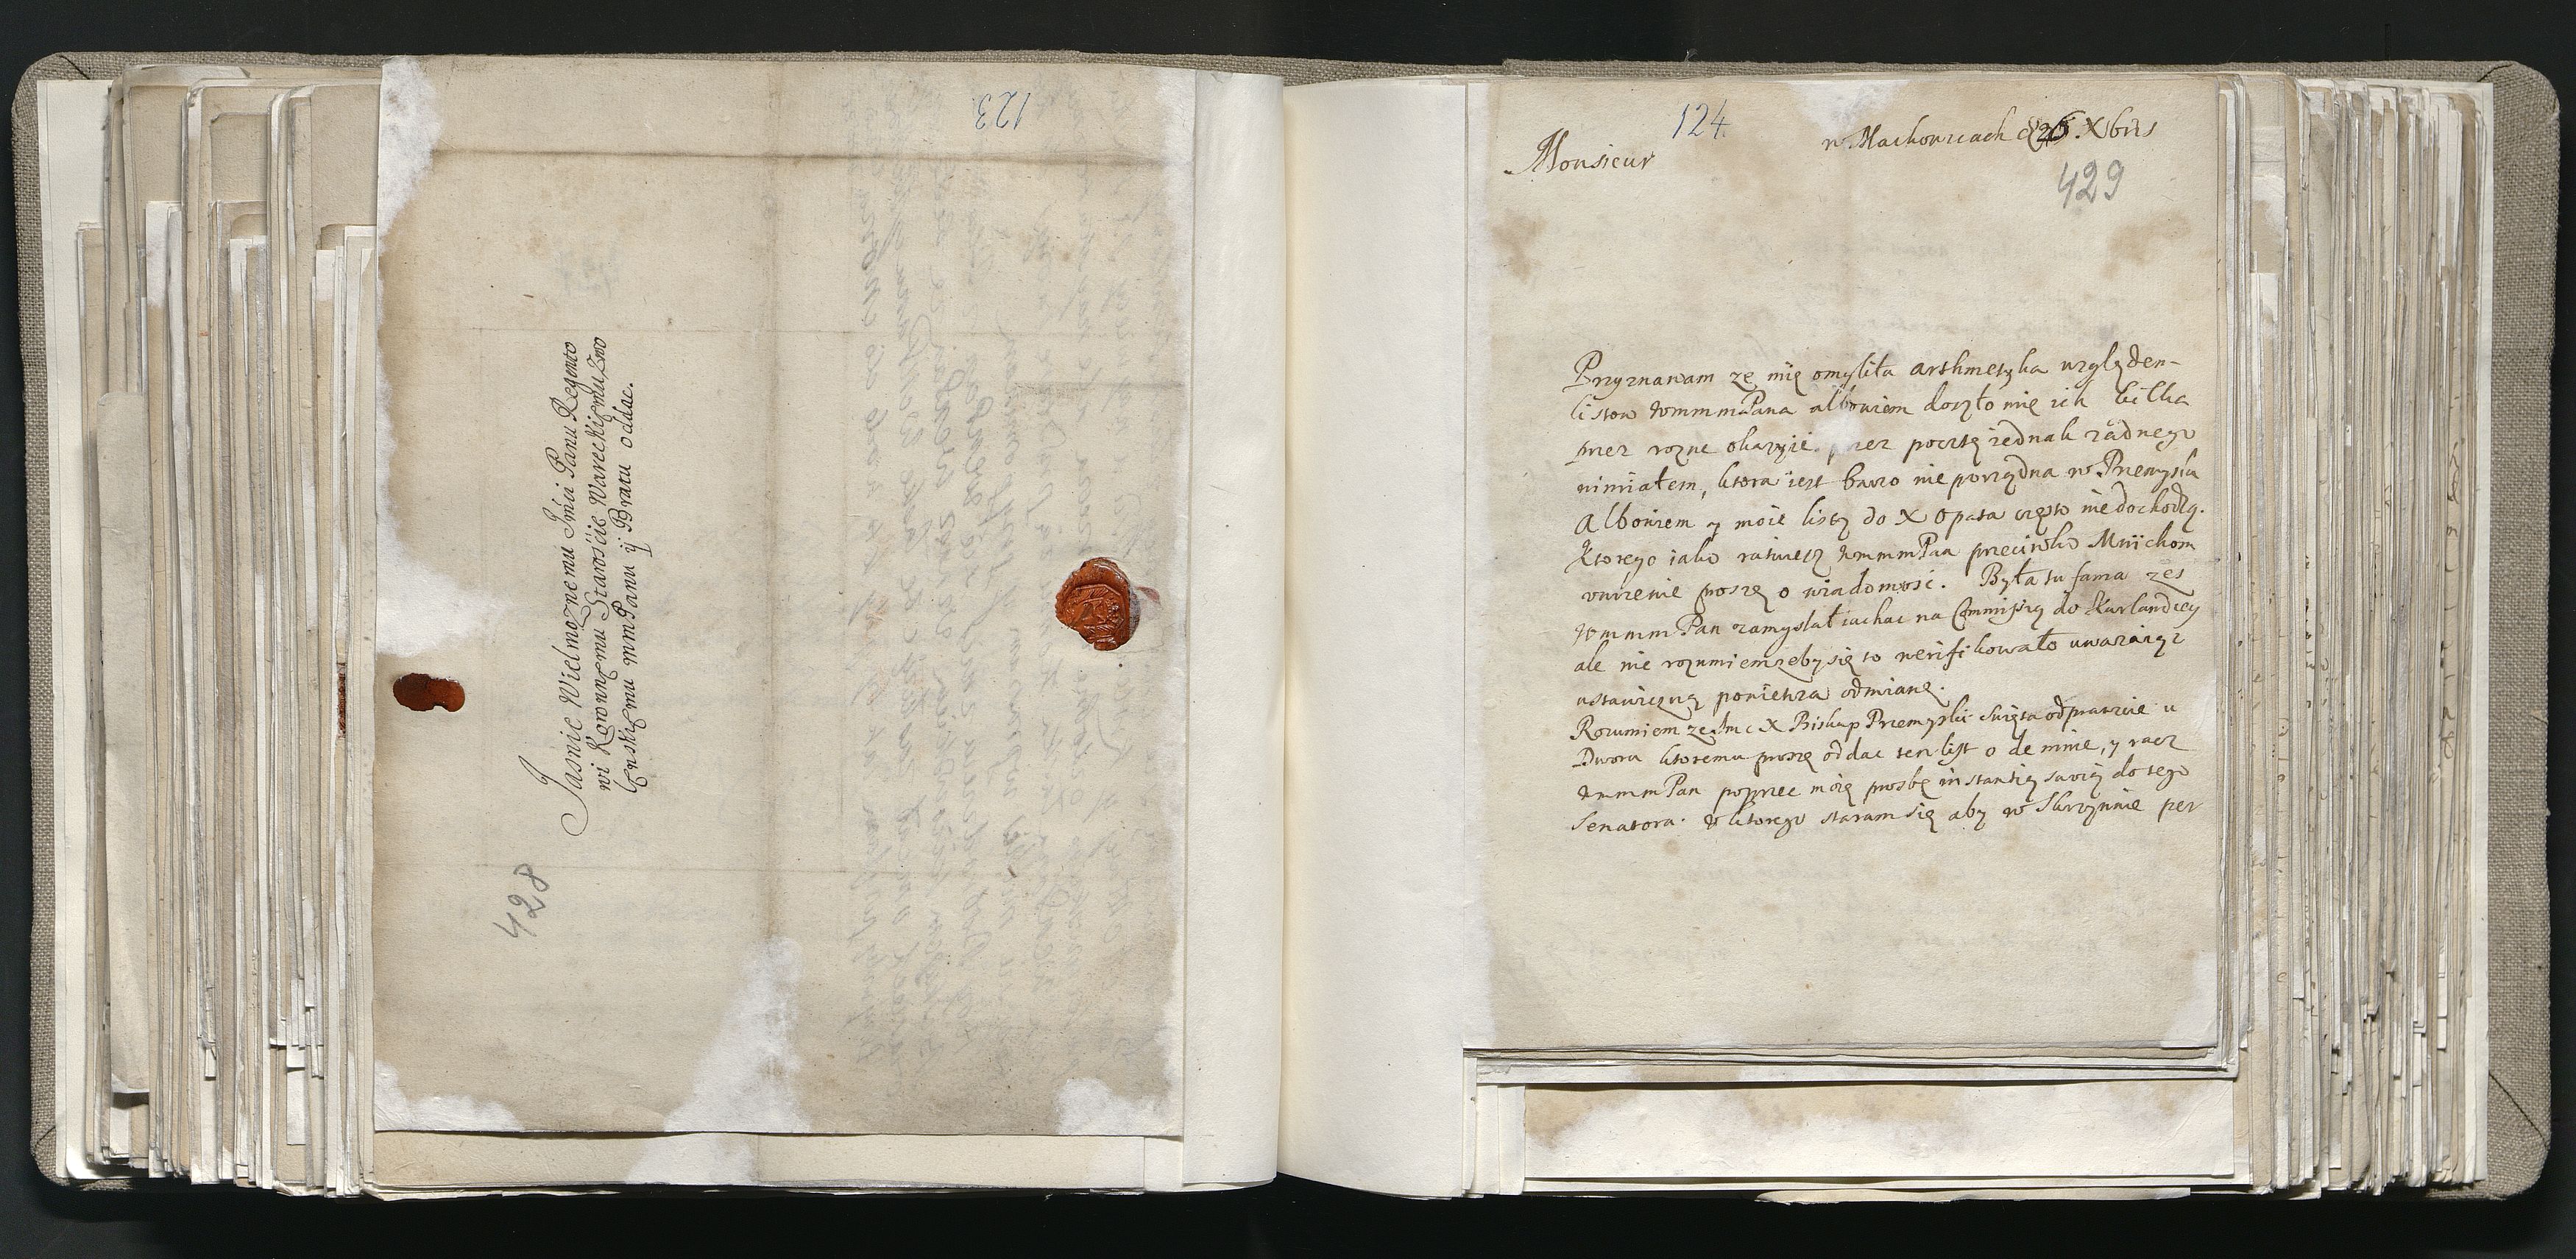 123
Jasnie Wielmożnemu Jmci Panu Regento
wi Koronnemu Staroście Wareckiemu Zwo
lenskiemu mmPanu y Bratu oddac.
428
124
w Mackowicach d 26 Xbris
Monsieur
429
Przyznawam ze mię omyliła arithmetyka względen-
listow wmmmPana albowiem doszło mię ich kilka
przez rozne okazyie przez pocztę iednak żadnego
nimiałem, ktora iest barzo nie porządna w Premyslu
Albowiem y moie listy do X Opata często nie dochodzą.
Ktorego iako ratuiesz wmmmPan przeciwko Mnichom
unizenie proszę o wiadomosc. Była tu fama żes
wmmm Pan zamyslał iachac na Commissyą do Kurlandiey
ale nie rozumiem zeby się to verifikowało uwazaiąc
ustawiczną powietrza odmianę.
Rozumiem ze Jmc X Biskup Przemyski Swięta odprawuie u
Dworu ktoremu proszę oddac ten list o de mnie, y racz
wmmm Pan poprzec moię prosbę instantią swoią do tego
Senatora. U ktorego staram się aby w Skrzynnie per